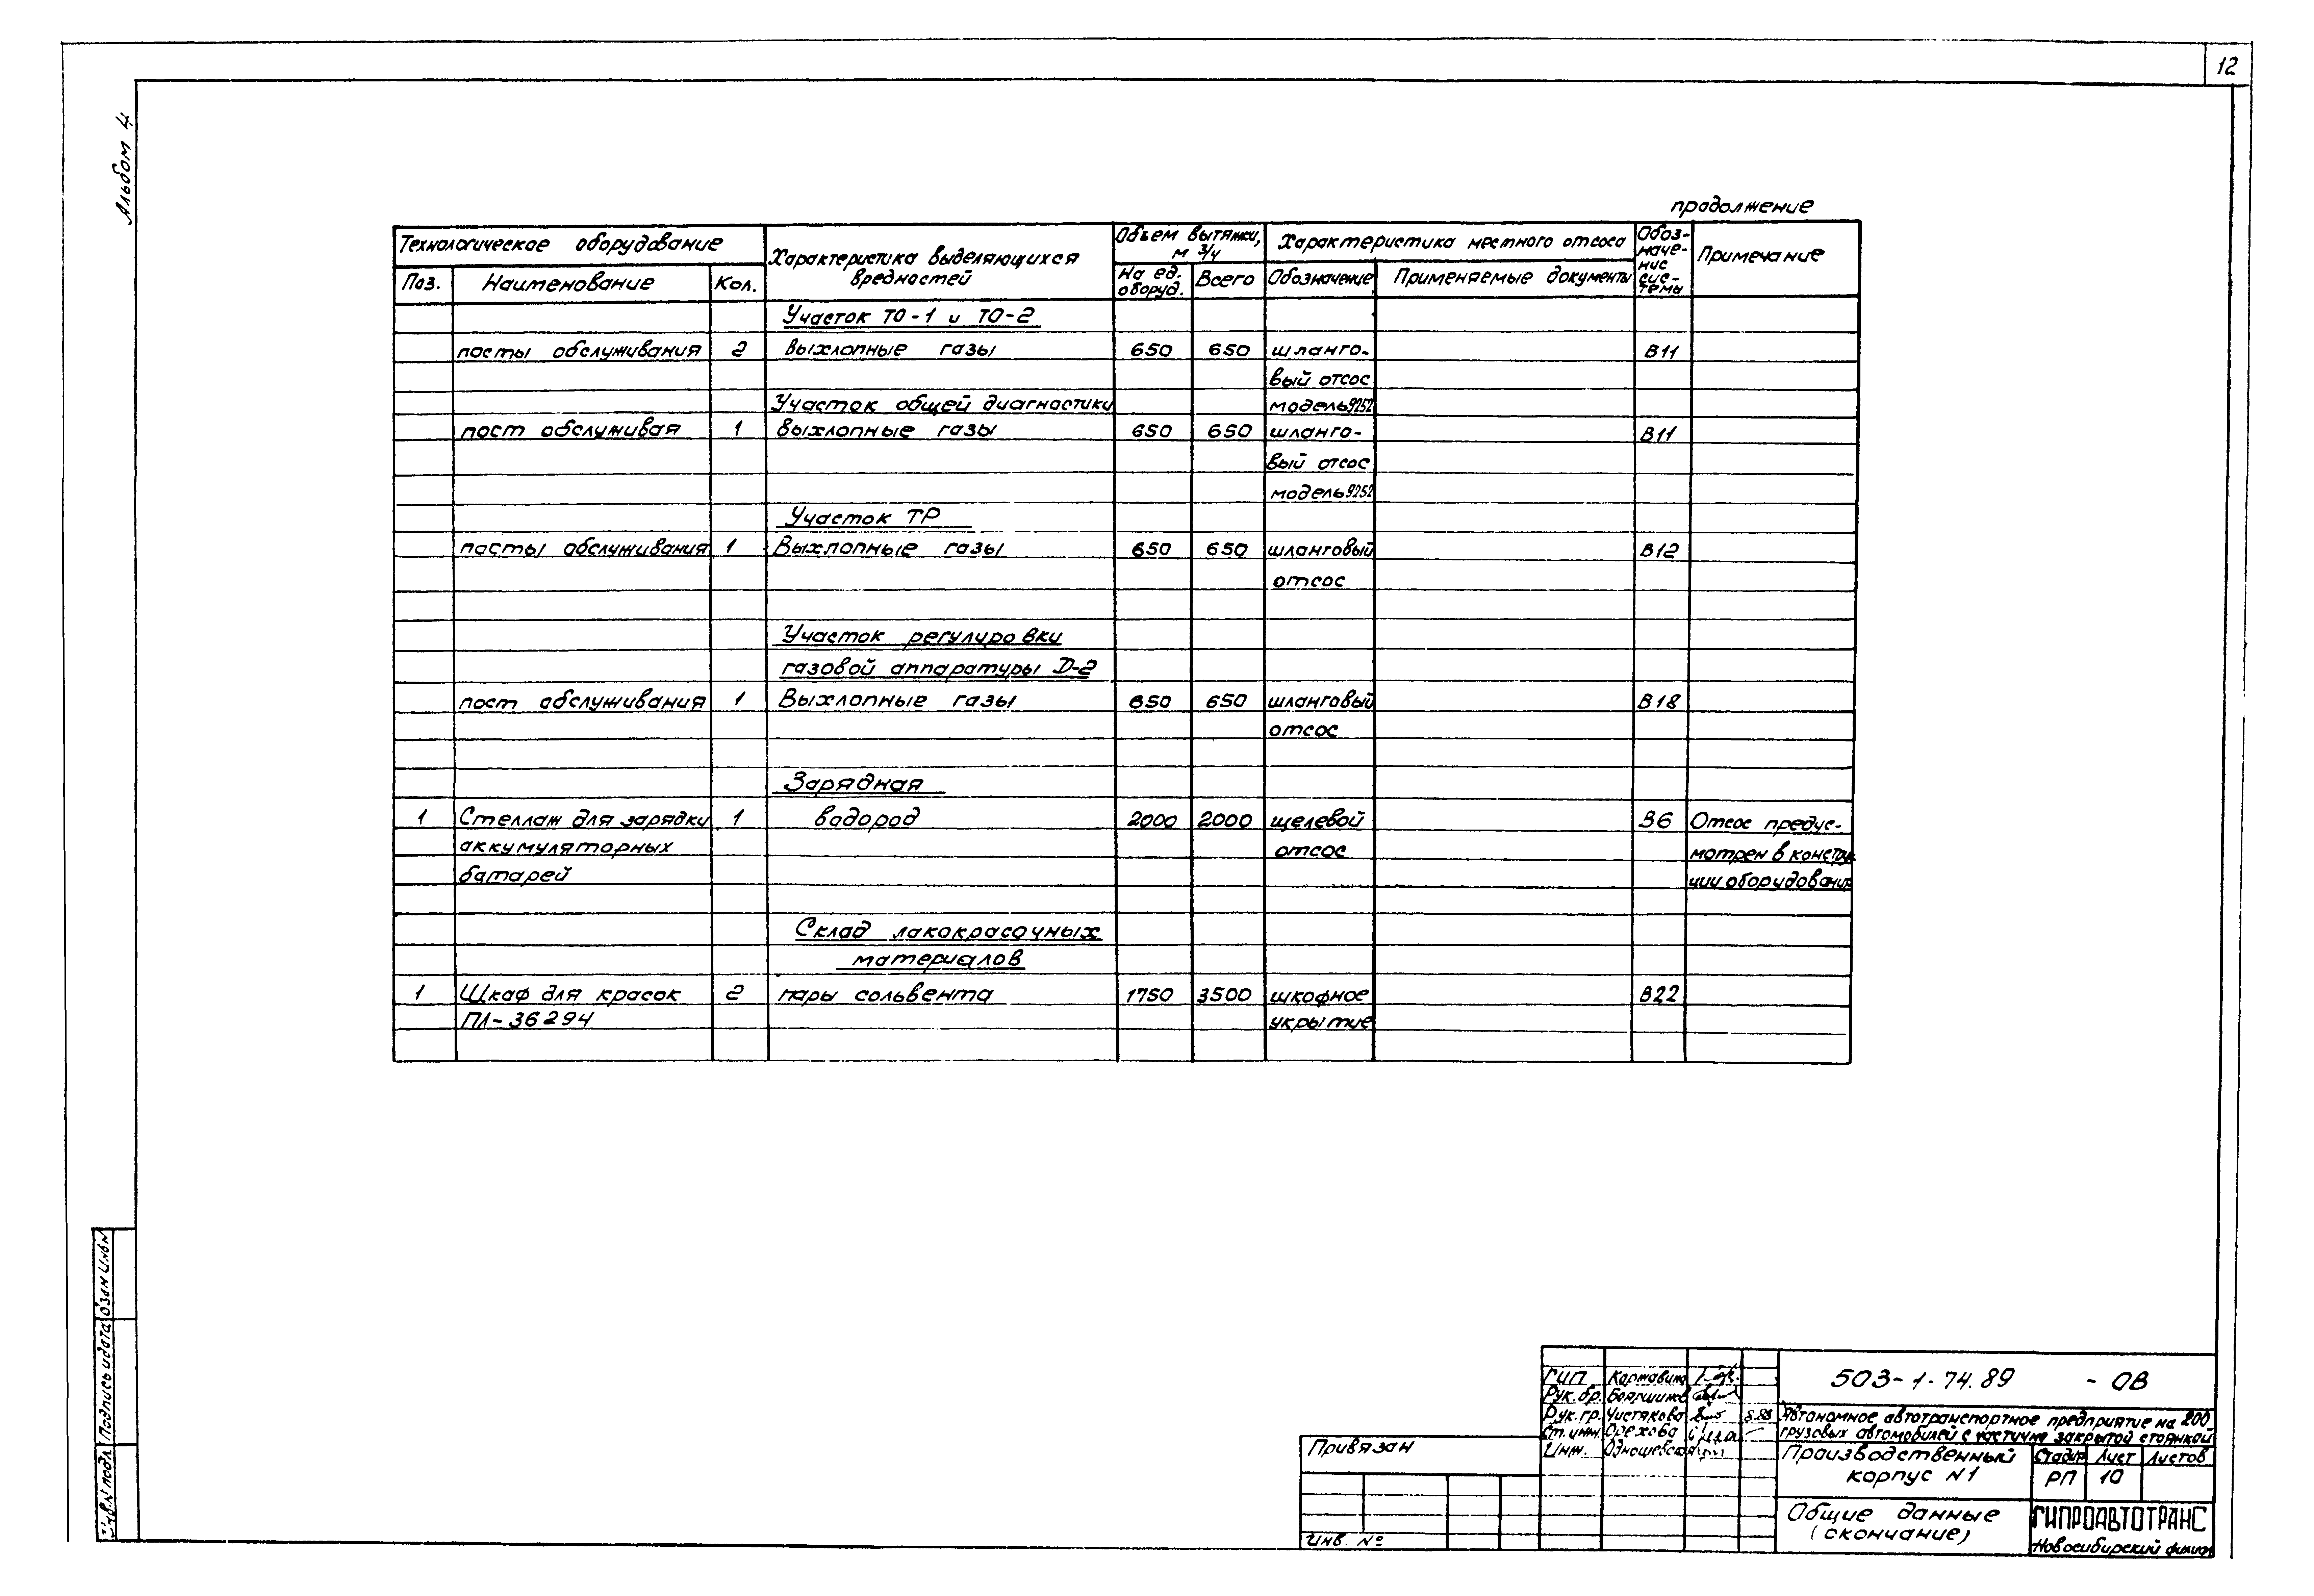 12
Альбом 4
продолжение
Технологическое оборудование
Характеристика выделяющихся вредностей
Объем вытяжки, м 3/ч
Характеристика местного отсоса
Обоз-
наче-
ние
сис-
темы
Примечание
Поз. Наименование Кол.
На ед. оборуд. Всего
Обозначение Применяемые документы
Участок ТО-1 и ТО-2
посты обслуживания 2 выхлопные газы 650 650 шланго- В11
вый отсос
Участок общей диагностики модель 9252
пост обслуживая 1 выхлопные газы 650 650 шланго- В11
вый отсос
модель 9252
Участок ТР
посты обслуживания 1 Выхлопные газы 650 650 шланговый В12
отсос
Участок регулировки
газовой аппаратуры Д-2
пост обслуживания 1 Выхлопные газы 650 650 шланговый В18
отсос
Зарядная
1 Стеллаж для зарядки 1 водород 2000 2000 щелевой В6 Отсос предус-
аккумуляторных отсос мотрен в конструк
батарей ции оборудования
Склад лакокрасочных
материалов
1 Шкаф для красок 2 пары сольвента 1750 3500 шкофное В22
ПЛ-36294 укрытие
Инв.N подл. Подпись и дата Взам инв.N
Привязан
Инв. №
ГИП
Рук. бр. Бояршинов
Рук. гр. Чистякова
Ст. инж. Орехова
Инж.
503-1-74.89 - ОВ
Автономное автотранспортное предприятие на 200
грузовых автомобилей с частично закрытой стоянкой
Производственный
корпус N1
Стадия Лист Листов
РП 10
Общие данные
(окончание)
ГИПРОАВТОТРАНС
Новосибирский филиал